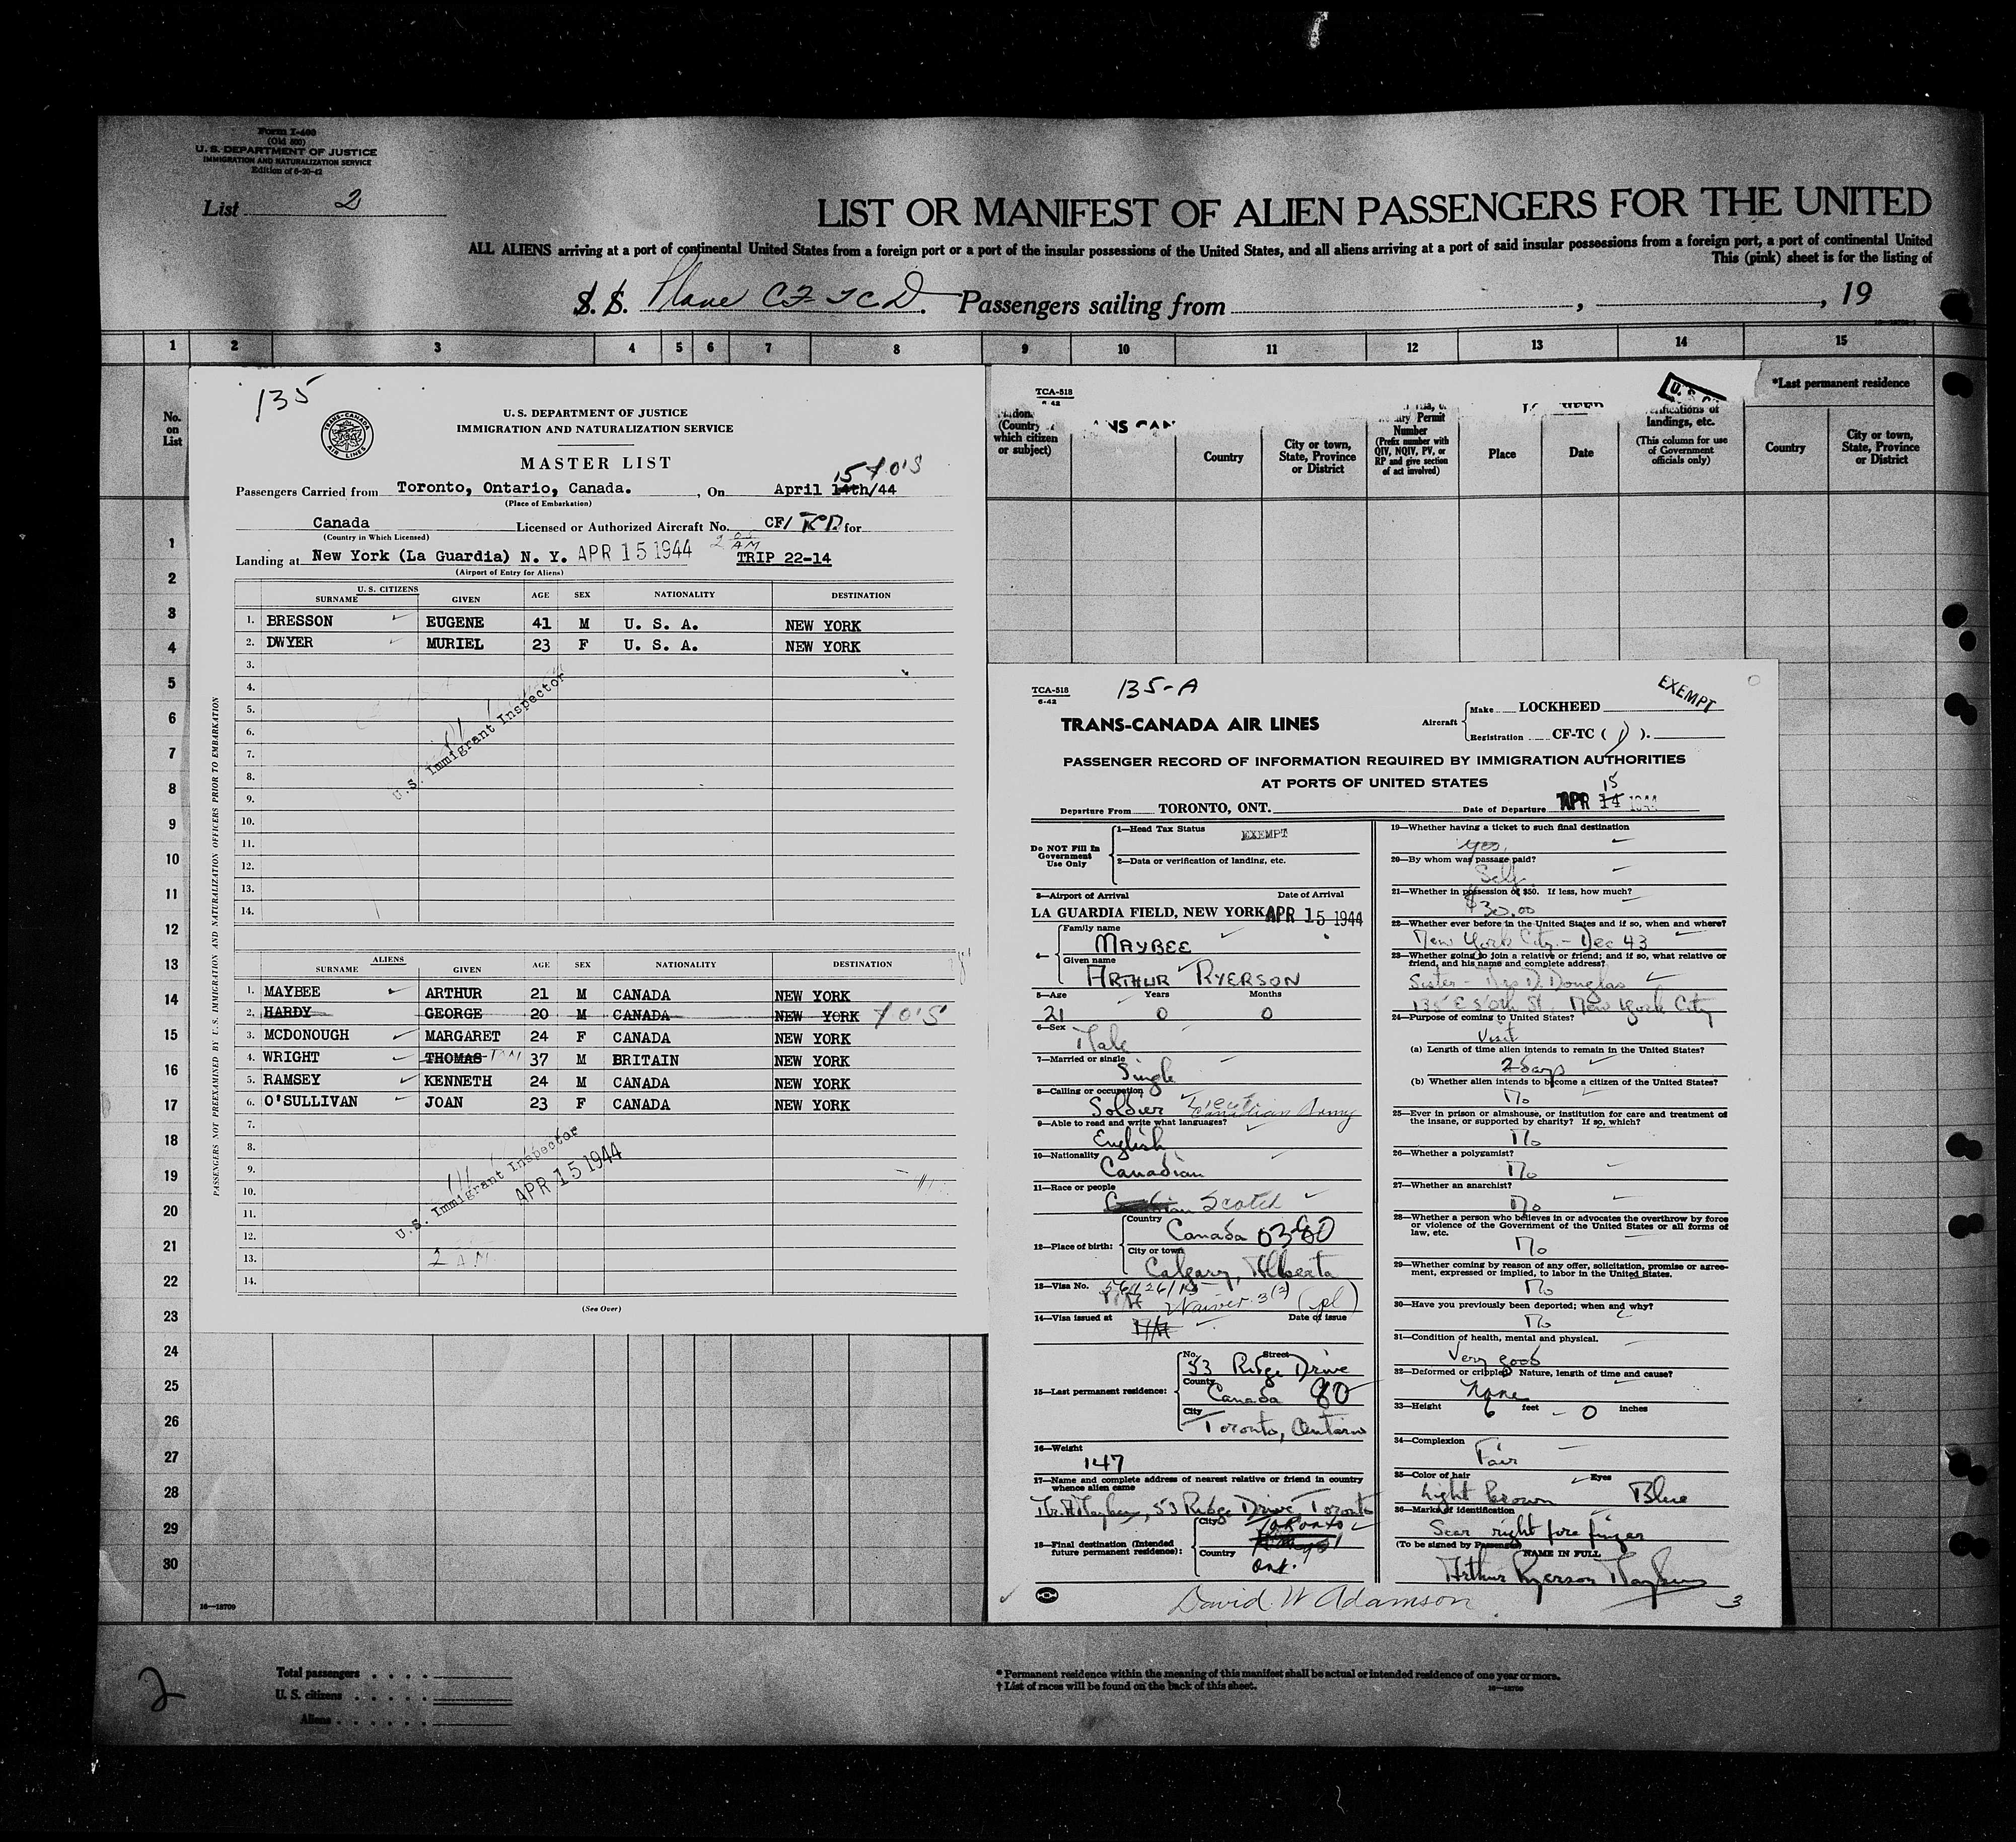 Form I-466
(Old 500)
U. S. DEPARTMENT OF JUSTICE
IMMIGRATION AND NATURALIZATION SERVICE
List 2
LIST OR MANIFEST OF ALIEN PASSENGERS FOR THE UNITED
ALL ALIENS arriving at a port of continental United States from a foreign port or a port of the insular possessions of the United States, and all aliens arriving at a port of said insular possessions from a foreign port, a port of continental United
This (pink) sheet is for the listing of
S. S. Plane CF-TCD. Passengers sailing from , , 19
1 2 3 4 5 6 7 8 9 10 11 12 13 14 15
No. on List
135
TRANS-CANADA AIR LINES
U. S. DEPARTMENT OF JUSTICE
IMMIGRATION AND NATURALIZATION SERVICE
MASTER LIST
15 YO'S
Passengers Carried from Toronto, Ontario, Canada. , On April 14th/44
(Place of Embarkation)
Canada Licensed or Authorized Aircraft No. CF/ TCD for
(Country in Which Licensed)
Landing at New York (La Guardia) N. Y. APR 15 1944 2 AM TRIP 22-14
(Airport of Entry for Aliens)
U. S. CITIZENS
SURNAME GIVEN AGE SEX NATIONALITY DESTINATION
1. BRESSON EUGENE 41 M U. S. A. NEW YORK
2. DWYER MURIEL 23 F U. S. A. NEW YORK
3.
4.
5.
6.
7.
8.
9.
10.
11.
12.
13.
14.
U. S. Immigrant Inspector
ALIENS
SURNAME GIVEN AGE SEX NATIONALITY DESTINATION
1. MAYBEE ARTHUR 21 M CANADA NEW YORK
2. HARDY GEORGE 20 M CANADA NEW YORK YO'S
3. MCDONOUGH MARGARET 24 F CANADA NEW YORK
4. WRIGHT THOMAS 37 M BRITAIN NEW YORK
5. RAMSEY KENNETH 24 M CANADA NEW YORK
6. O'SULLIVAN JOAN 23 F CANADA NEW YORK
7.
8.
9.
10.
11.
12.
13.
14.
U. S. Immigrant Inspector
APR 15 1944
2 AM
(See Over)
PASSENGERS NOT PREEXAMINED BY U.S. IMMIGRATION AND NATURALIZATION OFFICERS PRIOR TO EMBARKATION
1
2
3
4
5
6
7
8
9
10
11
12
13
14
15
16
17
18
19
20
21
22
23
24
25
26
27
28
29
30
16—18709
TCA-518
(Country of which citizen or subject)
Country
City or town, State, Province or District
Permit Number
(Prefix number with QIV, NQIV, PV, or RP and give section of act involved)
Place
Date
landings, etc.
(This column for use of Government officials only)
*Last permanent residence
Country
City or town, State, Province or District
TCA-518
6-42
135-A
EXEMPT
TRANS-CANADA AIR LINES
Aircraft
Make LOCKHEED
Registration CF-TC ( D ).
PASSENGER RECORD OF INFORMATION REQUIRED BY IMMIGRATION AUTHORITIES
AT PORTS OF UNITED STATES
Departure From TORONTO, ONT. Date of Departure APR 14 15 1944
Do NOT Fill In
Government
Use Only
1—Head Tax Status EXEMPT
2—Data or verification of landing, etc.
3—Airport of Arrival Date of Arrival
LA GUARDIA FIELD, NEW YORK APR 15 1944
4—
Family name
MAYBEE
Given name
ARTHUR RYERSON
5—Age Years Months
21 0 0
6—Sex
Male
7—Married or single
Single
8—Calling or occupation
Soldier Canadian Army
9—Able to read and write what languages?
English
10—Nationality
Canadian
11—Race or people
Scotch
12—Place of birth:
Country
Canada 0380
City or town
Calgary, Alberta
13—Visa No.
Waiver 3(2) (pl)
14—Visa issued at Date of issue
N/A
15—Last permanent residence:
No. Street
53 Ridge Drive
County
Canada 80
City
Toronto, Ontario
16—Weight
147
17—Name and complete address of nearest relative or friend in country
whence alien came
Mr. A Maybee, 53 Ridge Drive Toronto
18—Final destination (Intended
future permanent residence):
City
Toronto
Country
Ont.
19—Whether having a ticket to such final destination
yes
20—By whom was passage paid?
Self
21—Whether in possession of $50. If less, how much?
$30.00
22—Whether ever before in the United States and if so, when and where?
New York City - Dec 43
23—Whether going to join a relative or friend; and if so, what relative or
friend, and his name and complete address?
Sister - Mrs D. Douglas
135 E 50th St. New York City
24—Purpose of coming to United States?
Visit
(a) Length of time alien intends to remain in the United States?
2 days
(b) Whether alien intends to become a citizen of the United States?
No
25—Ever in prison or almshouse, or institution for care and treatment of
the insane, or supported by charity? If so, which?
No
26—Whether a polygamist?
No
27—Whether an anarchist?
No
28—Whether a person who believes in or advocates the overthrow by force
or violence of the Government of the United States or all forms of
law, etc.
No
29—Whether coming by reason of any offer, solicitation, promise or agree-
ment, expressed or implied, to labor in the United States.
No
30—Have you previously been deported; when and why?
No
31—Condition of health, mental and physical.
Very good
32—Deformed or crippled? Nature, length of time and cause?
None
33—Height 6 feet - 0 inches
34—Complexion
Fair
35—Color of hair Eyes
Light brown Blue
36—Marks of identification
Scar right fore finger
(To be signed by Passenger) NAME IN FULL
Arthur Ryerson Maybee
David W Adamson
3
2
Total passengers
U. S. citizens
Aliens
* Permanent residence within the meaning of this manifest shall be actual or intended residence of one year or more.
† List of races will be found on the back of this sheet.
16—18709